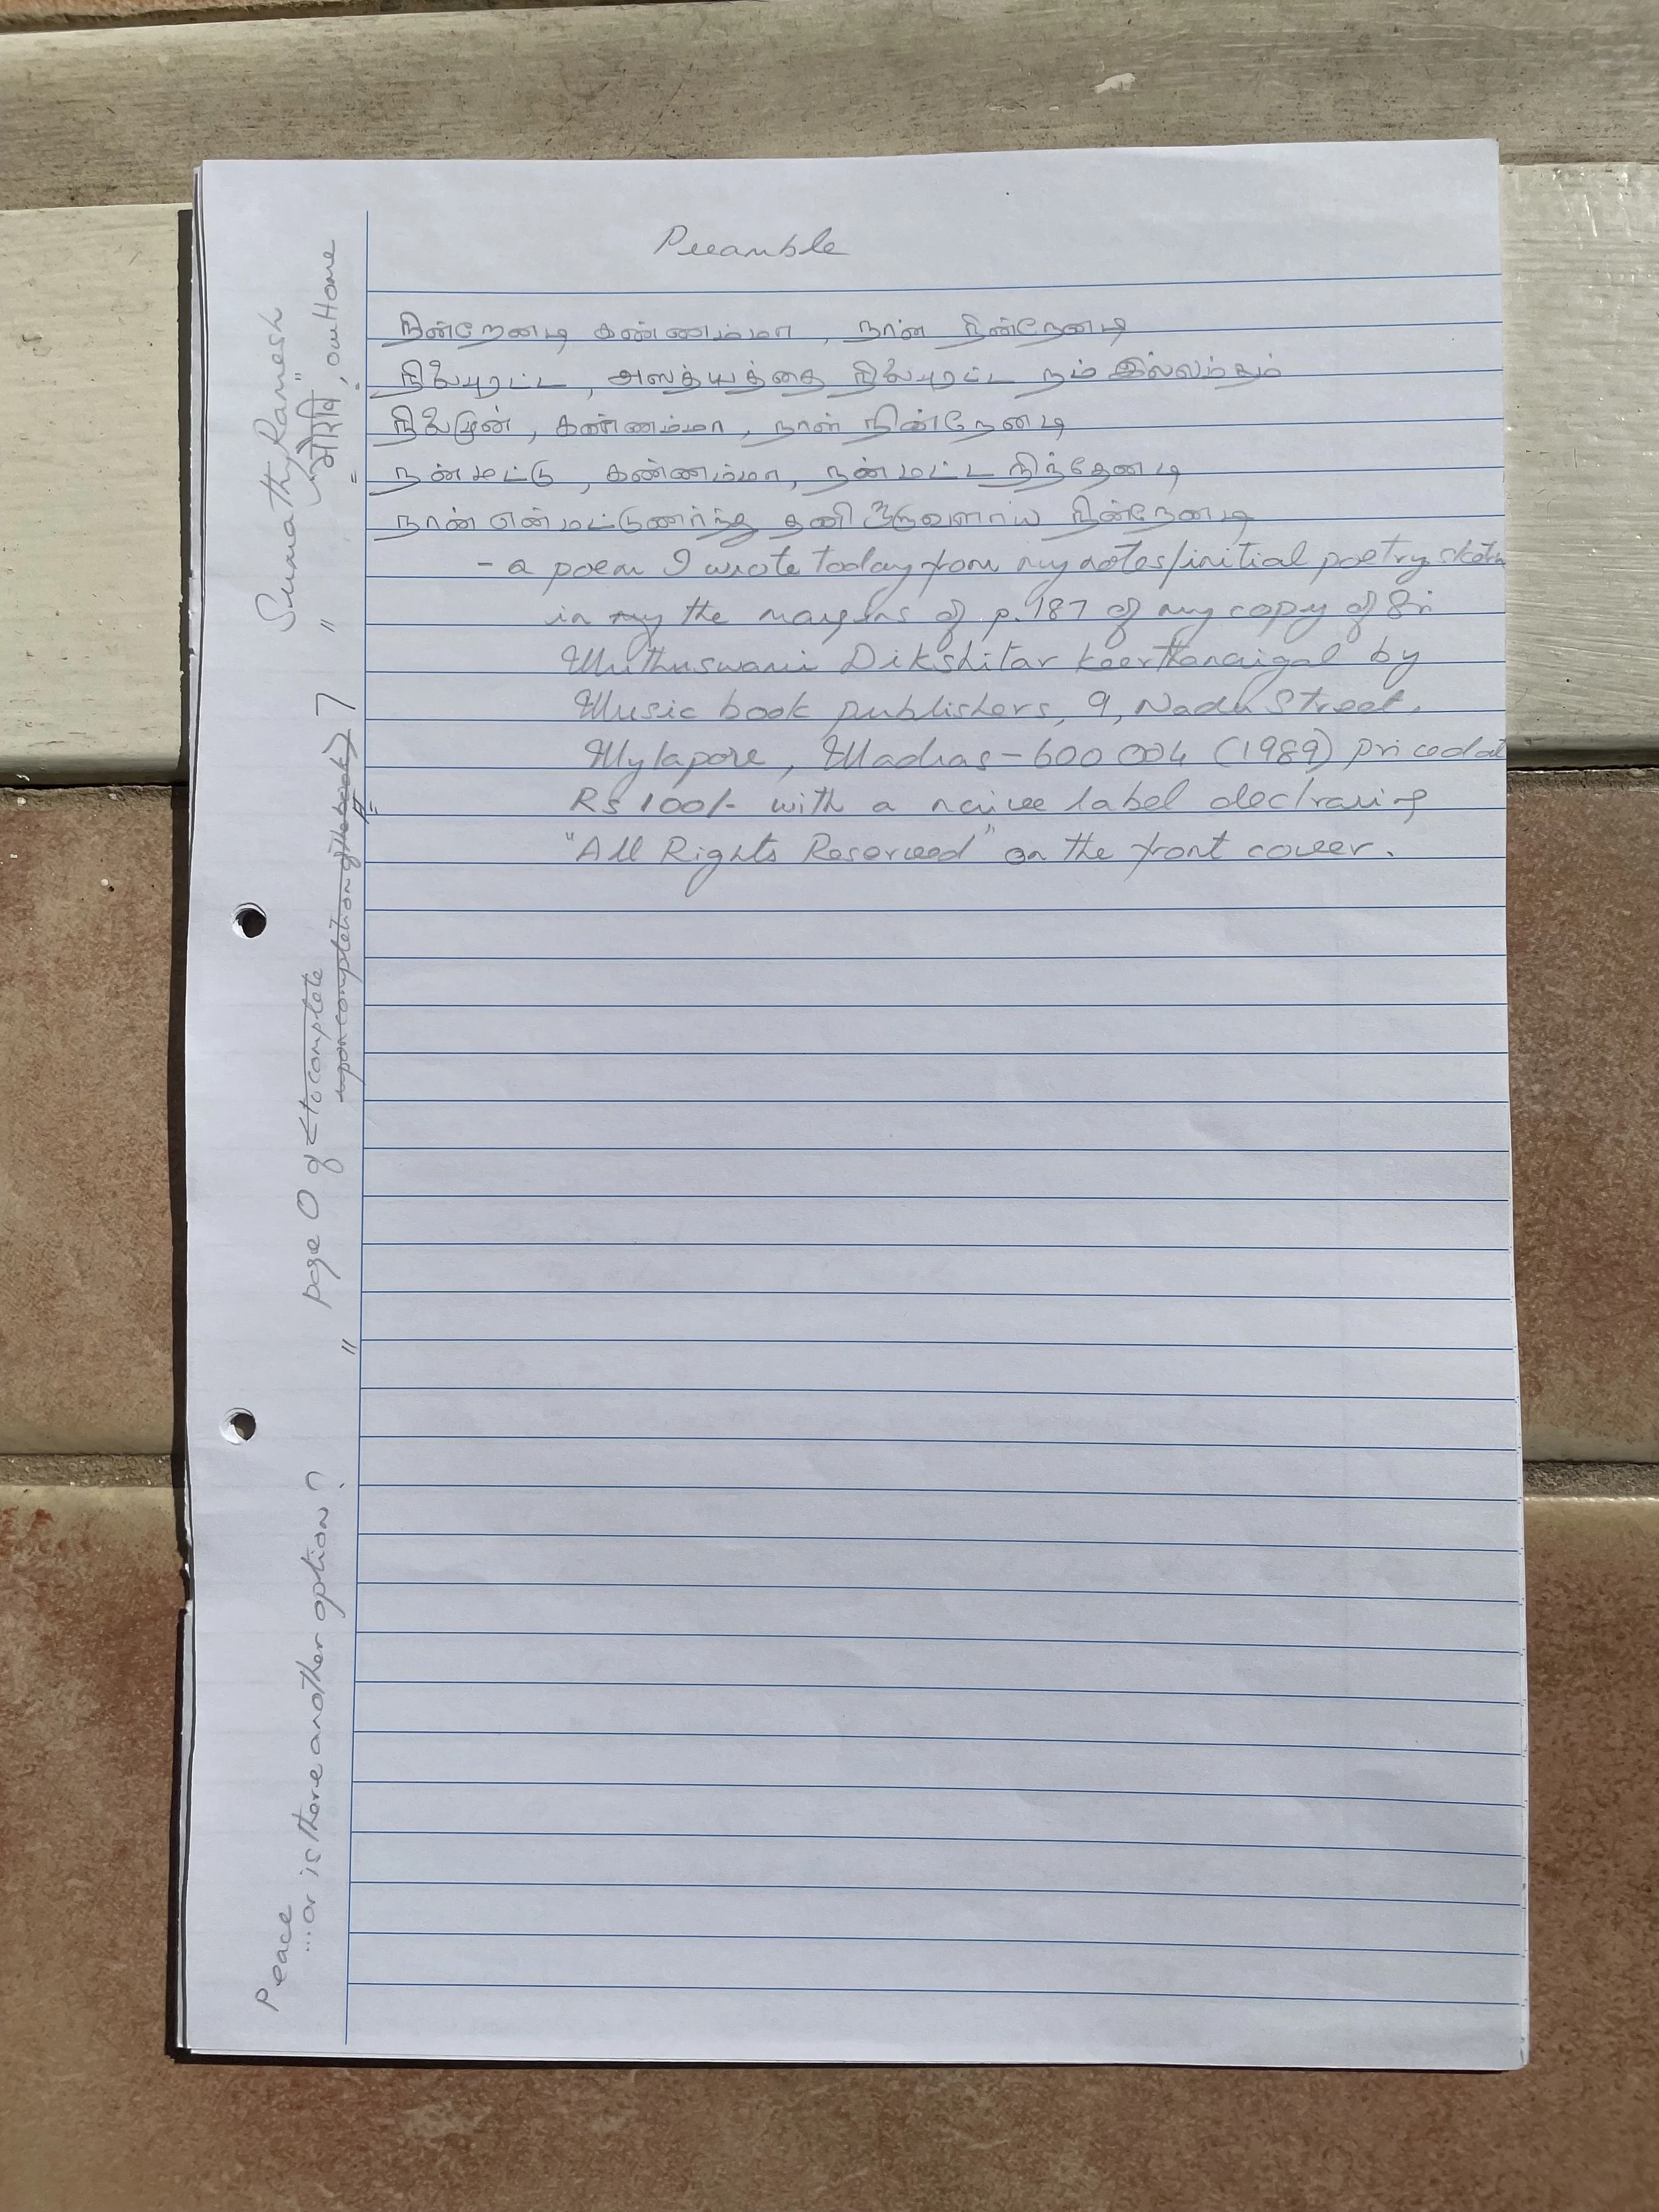 Preamble
நின்றேனடி கண்ணம்மா, நான் நின்றேனடி
நிலைபுரட்ட, அஸத்யத்தை நிலைபுரட்ட நம் இல்லம்தும்
நிலைமுன், கண்ணம்மா, நான் நின்றேனடி
நன்மட்டு, கண்ணம்மா, நன்மட்ட நிந்தேனடி
நான் என்மட்டுணர்ந்து தனி உருவளாய் நின்றேனடி
- a poem I wrote today from my notes/initial poetry sketch
in my the margins of p.187 of my copy of Sri
Muthuswami Dikshitar keerthanaigal by
Music book publishers, 9, Nadu Street,
Mylapore, Madras-600 004 (1989) priced at
Rs 100/- with a naivee label declraring
"All Rights Reserveed" on the front coveer.
Sumathy Ramesh
"भैरवि", our Home
page 0 of <to complete
upon completion of the book> 7
Peace
...or is there another option?